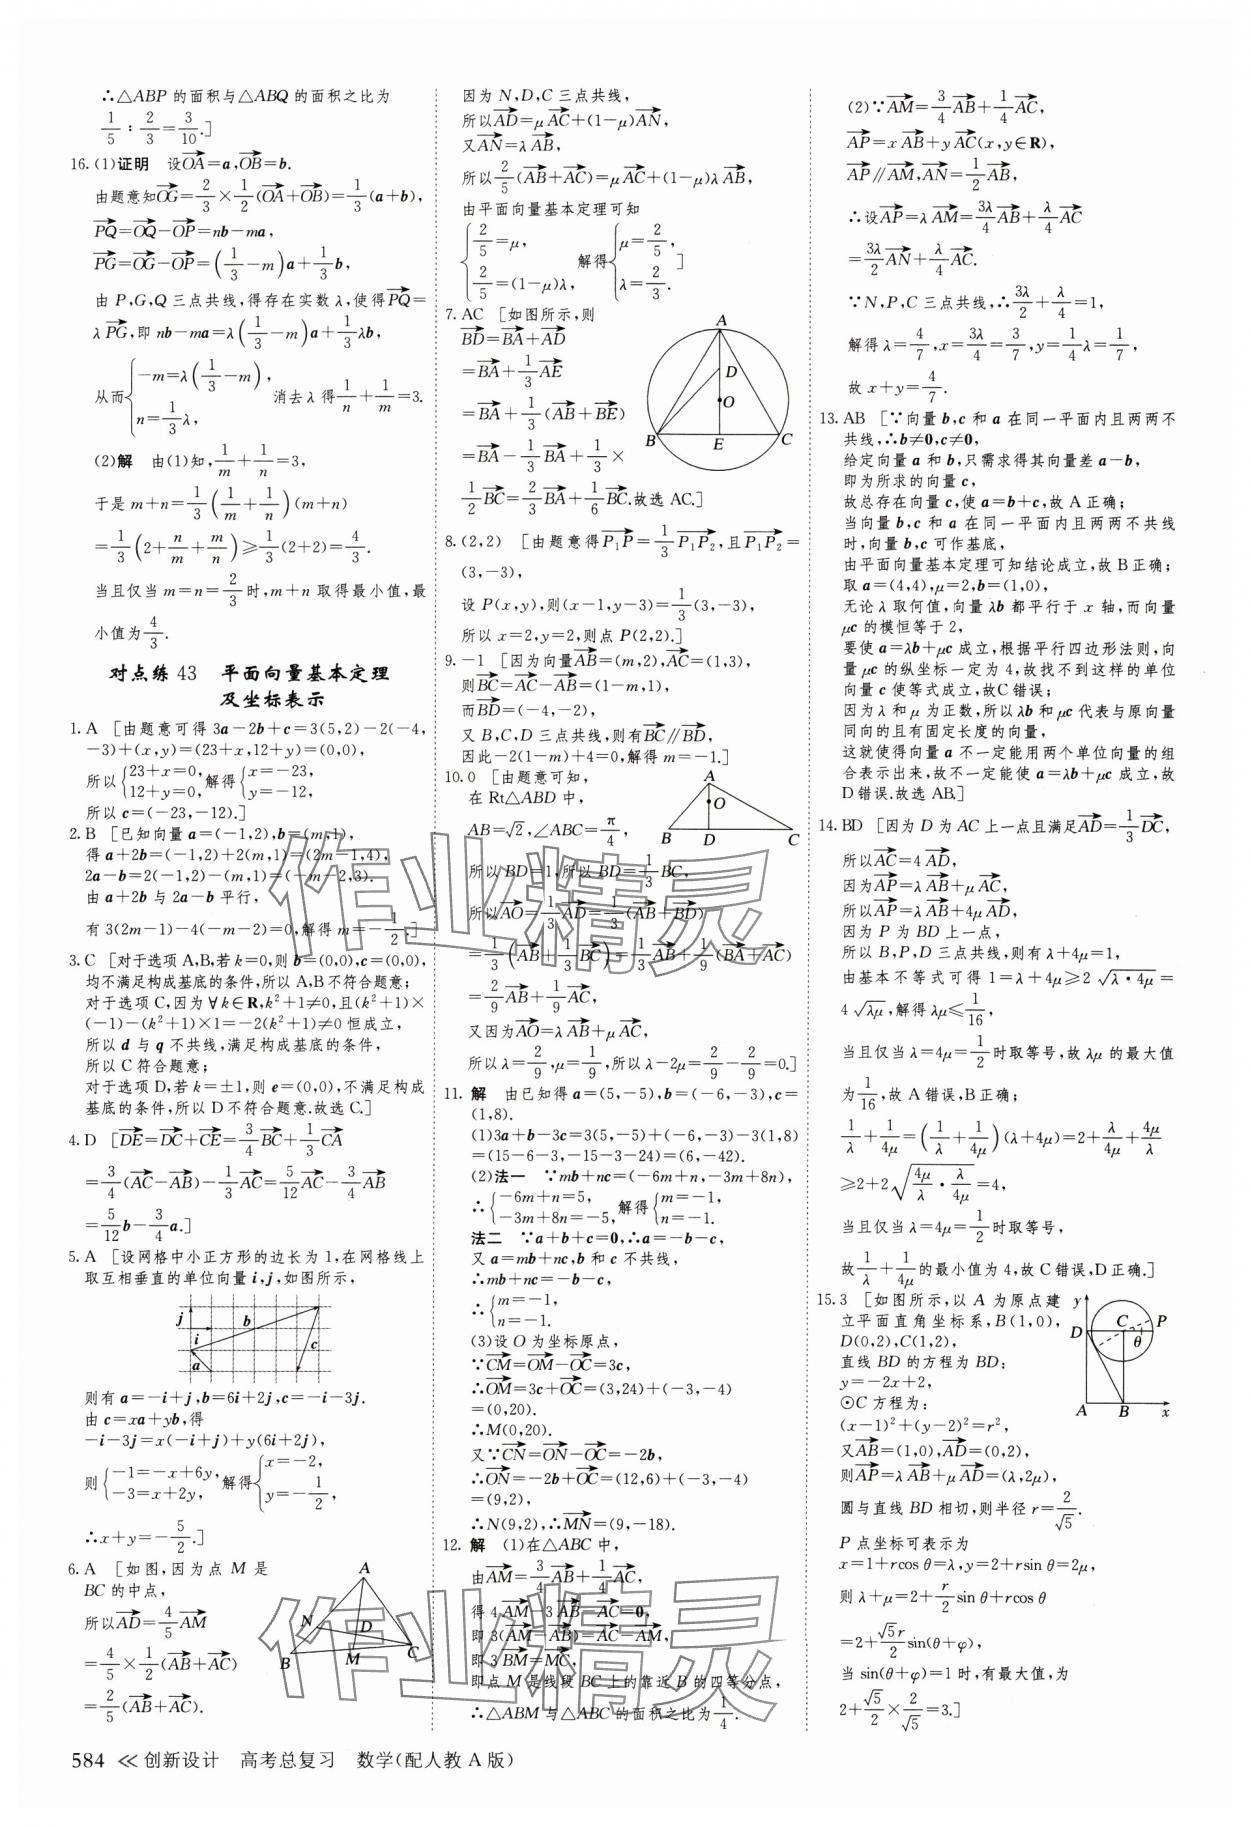 ∴△ABP 的面积与△ABQ 的面积之比为
1/5 : 2/3 = 3/10.]
16.(1)证明 设OA→=a,OB→=b.
由题意知OG→=2/3×1/2(OA→+OB→)=1/3(a+b),
PQ→=OQ→-OP→=nb-ma,
PG→=OG→-OP→=(1/3-m)a+1/3b,
由 P,G,Q 三点共线,得存在实数 λ,使得PQ→=
λPG→,即 nb-ma=λ(1/3-m)a+1/3λb,
从而{-m=λ(1/3-m), n=1/3λ, 消去 λ 得1/n+1/m=3.
(2)解 由(1)知,1/m+1/n=3,
于是 m+n=1/3(1/m+1/n)(m+n)
=1/3(2+n/m+m/n)≥1/3(2+2)=4/3.
当且仅当 m=n=2/3时,m+n 取得最小值,最
小值为4/3.
对点练 43 平面向量基本定理
及坐标表示
1.A [由题意可得 3a-2b+c=3(5,2)-2(-4,
-3)+(x,y)=(23+x,12+y)=(0,0),
所以{23+x=0, 12+y=0, 解得{x=-23, y=-12,
所以 c=(-23,-12).]
2.B [已知向量 a=(-1,2),b=(m,1),
得 a+2b=(-1,2)+2(m,1)=(2m-1,4),
2a-b=2(-1,2)-(m,1)=(-m-2,3).
由 a+2b 与 2a-b 平行,
有 3(2m-1)-4(-m-2)=0,解得 m=-1/2.]
3.C [对于选项 A,B,若 k=0,则 b=(0,0),c=(0,0),
均不满足构成基底的条件,所以 A,B不符合题意;
对于选项 C,因为∀k∈R,k²+1≠0,且(k²+1)×
(-1)-(k²+1)×1=-2(k²+1)≠0 恒成立,
所以 d 与 q 不共线,满足构成基底的条件,
所以 C 符合题意;
对于选项 D,若 k=±1,则 e=(0,0),不满足构成
基底的条件,所以 D 不符合题意.故选 C.]
4.D [DE→=DC→+CE→=3/4BC→+1/3CA→
=3/4(AC→-AB→)-1/3AC→=5/12AC→-3/4AB→
=5/12b-3/4a.]
5.A [设网格中小正方形的边长为 1,在网格线上
取互相垂直的单位向量 i,j,如图所示,
j b i c a
则有 a=-i+j,b=6i+2j,c=-i-3j.
由 c=xa+yb,得
-i-3j=x(-i+j)+y(6i+2j),
则{-1=-x+6y, -3=x+2y, 解得{x=-2, y=-1/2,
∴x+y=-5/2.]
6.A [如图,因为点 M 是
BC 的中点,
所以AD→=4/5AM→
=4/5×1/2(AB→+AC→)
=2/5(AB→+AC→).
A N D B M C
因为 N,D,C 三点共线,
所以AD→=μAC→+(1-μ)AN→,
又AN→=λAB→,
所以2/5(AB→+AC→)=μAC→+(1-μ)λAB→,
由平面向量基本定理可知
{2/5=μ, 2/5=(1-μ)λ, 解得{μ=2/5, λ=2/3.]
7.AC [如图所示,则
BD→=BA→+AD→
=BA→+1/3AE→
=BA→+1/3(AB→+BE→)
=BA→-1/3BA→+1/3×
1/2BC→=2/3BA→+1/6BC→.故选 AC.]
A D O B E C
8.(2,2) [由题意得P₁P→=1/3P₁P₂→,且P₁P₂→=
(3,-3),
设 P(x,y),则(x-1,y-3)=1/3(3,-3),
所以 x=2,y=2,则点 P(2,2).]
9.-1 [因为向量AB→=(m,2),AC→=(1,3),
则BC→=AC→-AB→=(1-m,1),
而BD→=(-4,-2),
又 B,C,D 三点共线,则有BC→∥BD→,
因此-2(1-m)+4=0,解得 m=-1.]
10.0 [由题意可知,
在 Rt△ABD 中,
AB=√2,∠ABC=π/4,
所以 BD=1,所以 BD=1/3BC,
所以AO→=1/3AD→=1/3(AB→+BD→)
=1/3(AB→+1/3BC→)=1/3AB→+1/9(BA→+AC→)
=2/9AB→+1/9AC→,
又因为AO→=λAB→+μAC→,
所以 λ=2/9,μ=1/9,所以 λ-2μ=2/9-2/9=0.]
A O B D C
11.解 由已知得 a=(5,-5),b=(-6,-3),c=
(1,8).
(1)3a+b-3c=3(5,-5)+(-6,-3)-3(1,8)
=(15-6-3,-15-3-24)=(6,-42).
(2)法一 ∵mb+nc=(-6m+n,-3m+8n),
∴{-6m+n=5, -3m+8n=-5, 解得{m=-1, n=-1.
法二 ∵a+b+c=0,∴a=-b-c,
又 a=mb+nc,b 和 c 不共线,
∴mb+nc=-b-c,
∴{m=-1, n=-1.
(3)设 O 为坐标原点,
∵CM→=OM→-OC→=3c,
∴OM→=3c+OC→=(3,24)+(-3,-4)
=(0,20).
∴M(0,20).
又∵CN→=ON→-OC→=-2b,
∴ON→=-2b+OC→=(12,6)+(-3,-4)
=(9,2),
∴N(9,2),∴MN→=(9,-18).
12.解 (1)在△ABC 中,
由AM→=3/4AB→+1/4AC→,
得 4AM→-3AB→-AC→=0,
即 3(AM→-AB→)=AC→-AM→,
即 3BM→=MC→,
即点 M 是线段 BC 上的靠近 B 的四等分点,
∴△ABM 与△ABC 的面积之比为1/4.
(2)∵AM→=3/4AB→+1/4AC→,
AP→=xAB→+yAC→(x,y∈R),
AP→∥AM→,AN→=1/2AB→,
∴设AP→=λAM→=3λ/4AB→+λ/4AC→
=3λ/2AN→+λ/4AC→.
∵N,P,C 三点共线,∴3λ/2+λ/4=1,
解得 λ=4/7,x=3λ/4=3/7,y=1/4λ=1/7,
故 x+y=4/7.
13.AB [∵向量 b,c 和 a 在同一平面内且两两不
共线,∴b≠0,c≠0,
给定向量 a 和 b,只需求得其向量差 a-b,
即为所求的向量 c,
故总存在向量 c,使 a=b+c,故 A 正确;
当向量 b,c 和 a 在同一平面内且两两不共线
时,向量 b,c 可作基底,
由平面向量基本定理可知结论成立,故 B正确;
取 a=(4,4),μ=2,b=(1,0),
无论 λ 取何值,向量 λb 都平行于 x 轴,而向量
μc 的模恒等于 2,
要使 a=λb+μc 成立,根据平行四边形法则,向
量 μc 的纵坐标一定为 4,故找不到这样的单位
向量 c 使等式成立,故C错误;
因为 λ 和 μ 为正数,所以 λb 和 μc 代表与原向量
同向的且有固定长度的向量,
这就使得向量 a 不一定能用两个单位向量的组
合表示出来,故不一定能使 a=λb+μc 成立,故
D 错误.故选 AB.]
14.BD [因为 D 为 AC 上一点且满足AD→=1/3DC→,
所以AC→=4AD→,
因为AP→=λAB→+μAC→,
所以AP→=λAB→+4μAD→,
因为 P 为 BD 上一点,
所以 B,P,D 三点共线,则有 λ+4μ=1,
由基本不等式可得 1=λ+4μ≥2√(λ·4μ)=
4√(λμ),解得 λμ≤1/16,
当且仅当 λ=4μ=1/2时取等号,故 λμ 的最大值
为1/16,故 A 错误,B 正确;
1/λ+1/4μ=(1/λ+1/4μ)(λ+4μ)=2+λ/4μ+4μ/λ
≥2+2√(4μ/λ·λ/4μ)=4,
当且仅当 λ=4μ=1/2时取等号,
故1/λ+1/4μ的最小值为 4,故 C 错误,D 正确.]
15.3 [如图所示,以 A 为原点建
立平面直角坐标系,B(1,0),
D(0,2),C(1,2),
直线 BD 的方程为 BD:
y=-2x+2,
⊙C 方程为:
(x-1)²+(y-2)²=r²,
又AB→=(1,0),AD→=(0,2),
则AP→=λAB→+μAD→=(λ,2μ),
圆与直线 BD 相切,则半径 r=2/√5.
P 点坐标可表示为
x=1+rcos θ=λ,y=2+rsin θ=2μ,
则 λ+μ=2+r/2sin θ+rcos θ
=2+√5r/2sin(θ+φ),
当 sin(θ+φ)=1时,有最大值,为
2+√5/2×2/√5=3.]
y D C P θ A B x
584 ≪ 创新设计 高考总复习 数学(配人教 A 版)
作业精灵
作业精灵